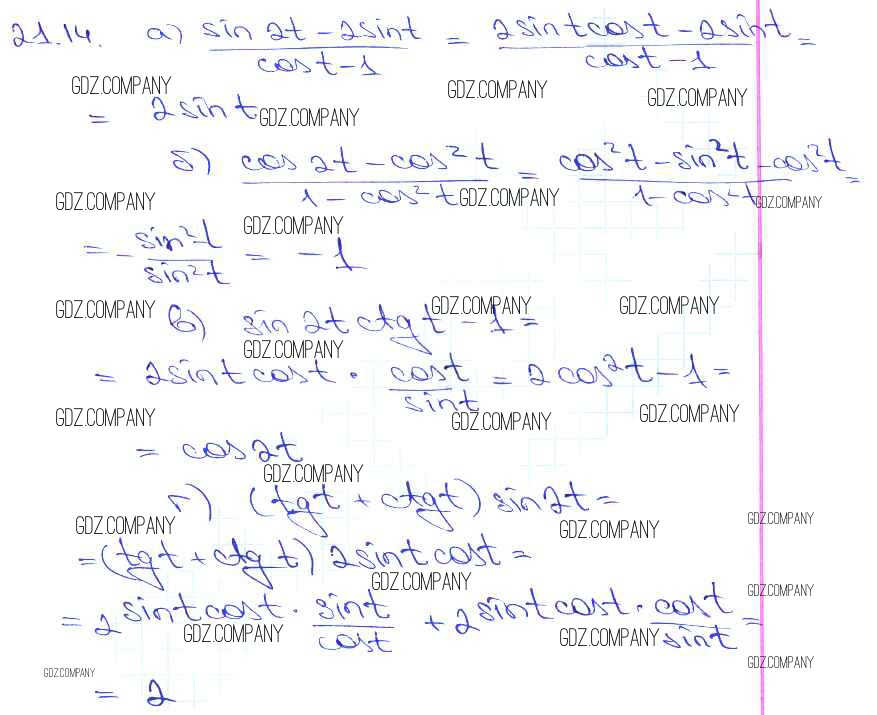 21.14. а) (sin 2t - 2sint)/(cost - 1) = (2sintcost - 2sint)/(cost - 1) =
GDZ.COMPANY GDZ.COMPANY GDZ.COMPANY
= 2sint GDZ.COMPANY
б) (cos 2t - cos²t)/(1 - cos²t) = (cos²t - sin²t - cos²t)/(1 - cos²t) =
GDZ.COMPANY GDZ.COMPANY GDZ.COMPANY
GDZ.COMPANY
= - sin²t/sin²t = -1
GDZ.COMPANY GDZ.COMPANY GDZ.COMPANY
в) sin 2t ctgt - 1 =
GDZ.COMPANY
= 2sintcost · cost/sint = 2cos²t - 1 =
GDZ.COMPANY GDZ.COMPANY GDZ.COMPANY
= cos2t
GDZ.COMPANY
г) (tgt + ctgt) sin2t =
GDZ.COMPANY GDZ.COMPANY GDZ.COMPANY
= (tgt + ctgt) 2sintcost =
GDZ.COMPANY GDZ.COMPANY
= 2sintcost · sint/cost + 2sintcost · cost/sint =
GDZ.COMPANY GDZ.COMPANY
GDZ.COMPANY GDZ.COMPANY
= 2